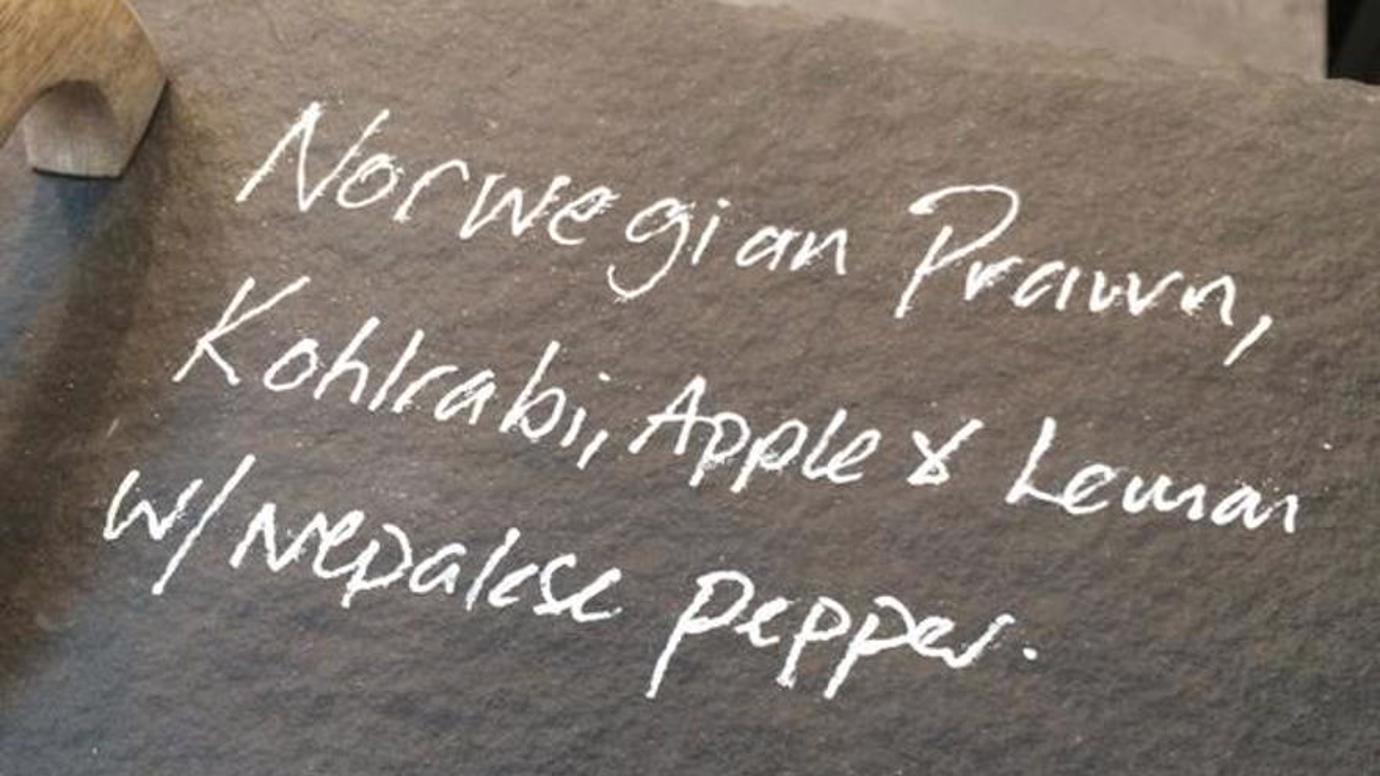 Norwegian Prawn,
Kohlrabi, Apple & Lemon
w/ Nepalese pepper.